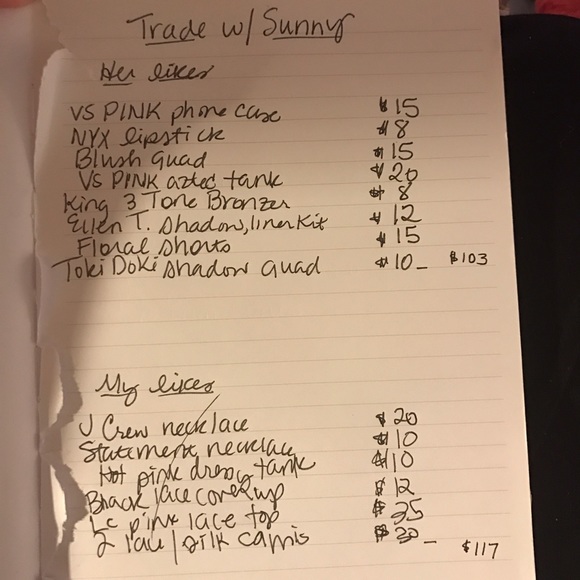 Trade w/ Sunny
Her likes
VS PINK phone case $15
NYX lipstick $8
Blush Quad $15
VS PINK aztec tank $20
King 3 Tone Bronzer $8
Ellen T. Shadow, liner Kit $12
Floral shorts $15
Toki Doki shadow quad $10 $103
My likes
J Crew necklace $20
Statement necklace $10
Hot pink dressy tank $10
Black lace coverup $12
Lc pink lace top $35
2 lace/silk camis $30 $117